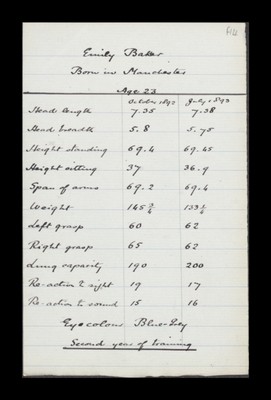 Emily Baker
Born in Manchester
Age 23
October 1892 July 1893
Head length 7.35 7.38
Head breadth 5.8 5.75
Height standing 69.4 69.45
Height sitting 37 36.9
Span of arms 69.2 69.4
Weight 145 3/4
Left grasp 60 62
Right grasp 65 62
Lung capacity 190 200
Re-action to sight 19 17
Re-action to sound 15 16
Eye colour Blue-Grey
Second year of training